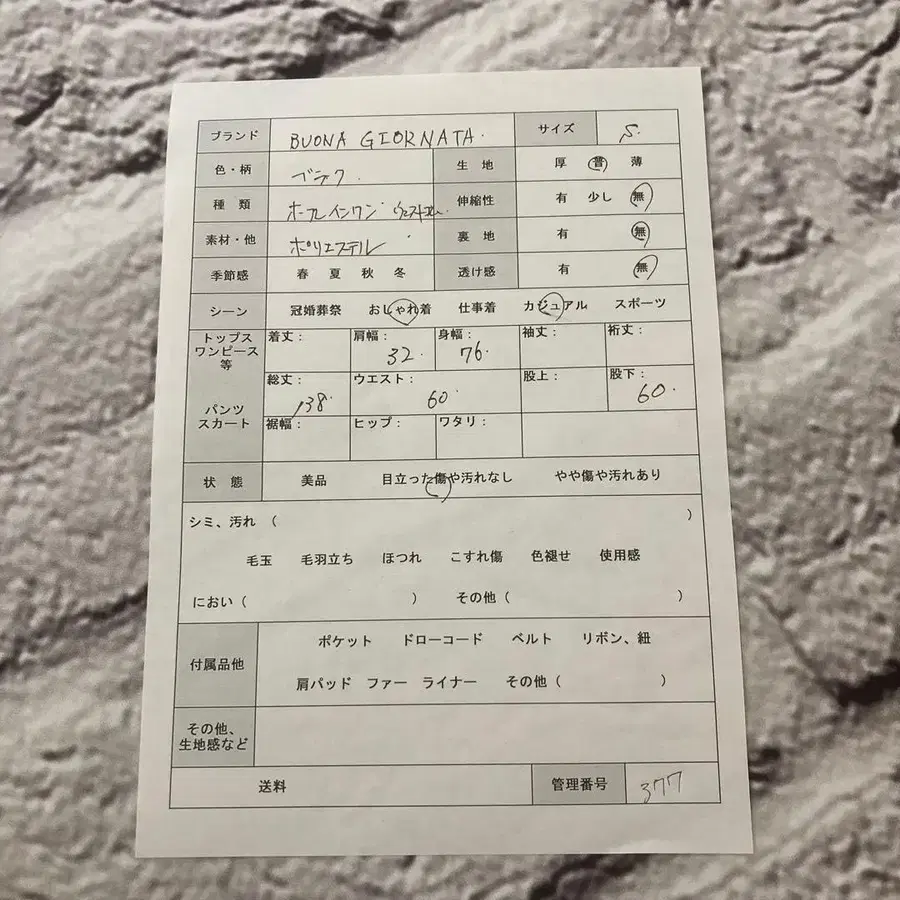 ブランド BUONA GIORNATA. サイズ S.
色・柄 ブラック. 生 地 厚 普 薄
種 類 オールインワン ウエストゴム. 伸縮性 有 少し 無
素材・他 ポリエステル 裏 地 有 無
季節感 春 夏 秋 冬 透け感 有 無
シーン 冠婚葬祭 おしゃれ着 仕事着 カジュアル スポーツ
トップス
ワンピース
等
着丈： 肩幅： 32. 身幅： 76. 袖丈： 裄丈：
パンツ
スカート
総丈： 138. ウエスト： 60. 股上： 股下： 60.
裾幅： ヒップ： ワタリ：
状 態 美品 目立った傷や汚れなし やや傷や汚れあり
シミ、汚れ （ ）
毛玉 毛羽立ち ほつれ こすれ傷 色褪せ 使用感
におい（ ） その他（ ）
付属品他 ポケット ドローコード ベルト リボン、紐
肩パッド ファー ライナー その他（ ）
その他、
生地感など
送料 管理番号 377